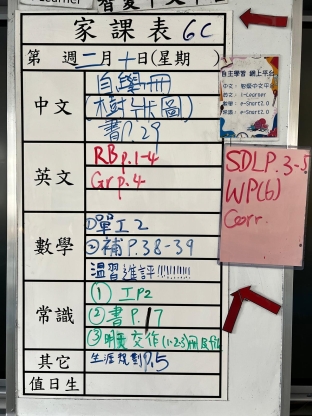 智愛中文平
i-Learner
家課表 6C
第 週 二月十日(星期 )
中文
自學冊
(樹狀圖)
書P.29
英文
RB p.1-4
Gr p.4
數學
①單工2
②補P.38-39
溫習進評!!!!!!!!
常識
① 工P2
② 書 P.17
③ 明天交作(1-2-3)
其它
生涯規劃P.5
值日生
自主學習 網上平台
中文:智愛中文平台
英文:i-Learner
數學:e-Smart2.0
常識:e-Smart2.0
SDLP.3-5
WP(6)
Corr.